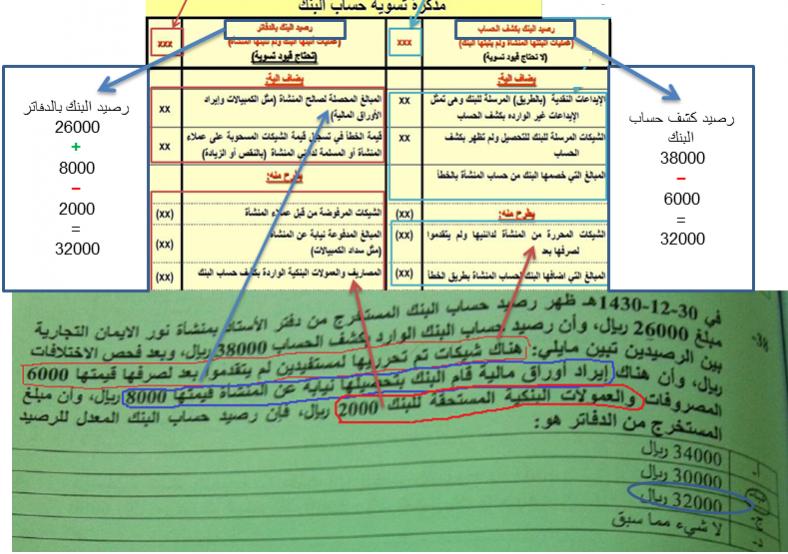 مذكرة تسوية حساب البنك
رصيد البنك بكشف الحساب
(عمليات اثبتتها المنشأة ولم يثبتها البنك)
(لا تحتاج قيود تسوية)
xxx
رصيد البنك بالدفاتر
(عمليات اثبتها البنك ولم تثبتها المنشأة)
(تحتاج قيود تسوية)
xxx
يضاف اليه:
الإيداعات النقدية (بالطريق) المرسلة للبنك وهى تمثل الإيداعات غير الواردة بكشف الحساب
xx
الشيكات المرسلة للبنك للتحصيل ولم تظهر بكشف الحساب
xx
المبالغ التي خصمها البنك من حساب المنشأة بالخطأ
يطرح منه:
(xx)
الشيكات المحررة من المنشأة لدائنيها ولم يتقدموا لصرفها بعد
(xx)
المبالغ التي اضافها البنك لحساب المنشأة بطريق الخطأ
(xx)
يضاف اليه:
المبالغ المحصلة لصالح المنشأة (مثل الكمبيالات وإيراد الأوراق المالية)
xx
قيمة الخطأ في تسجيل قيمة الشيكات المسحوبة على عملاء المنشأة أو المسلمة لدائني المنشأة (بالنقص أو الزيادة)
xx
يطرح منه:
الشيكات المرفوضة من قبل عملاء المنشأة
(xx)
المبالغ المدفوعة نيابة عن المنشأة
(مثل سداد الكمبيالات)
(xx)
المصاريف والعمولات البنكية الواردة بكشف حساب البنك
(xx)
رصيد كشف حساب
البنك
38000
−
6000
=
32000
رصيد البنك بالدفاتر
26000
+
8000
−
2000
=
32000
38- في 30-12-1430هـ ظهر رصيد حساب البنك المستخرج من دفتر الأستاذ بمنشأة نور الايمان التجارية
مبلغ 26000 ريال، وأن رصيد حساب البنك الوارد بكشف الحساب 38000 ريال، وبعد فحص الاختلافات
بين الرصيدين تبين مايلي: هناك شيكات تم تحريرها لمستفيدين لم يتقدموا بعد لصرفها قيمتها 6000
ريال، وأن هناك إيراد أوراق مالية قام البنك بتحصيلها نيابة عن المنشأة قيمتها 8000 ريال، وأن مبلغ
المصروفات والعمولات البنكية المستحقة للبنك 2000 ريال، فإن رصيد حساب البنك المعدل للرصيد
المستخرج من الدفاتر هو:
أ- 34000 ريال
ب- 30000 ريال
ج- 32000 ريال
د- لا شيء مما سبق